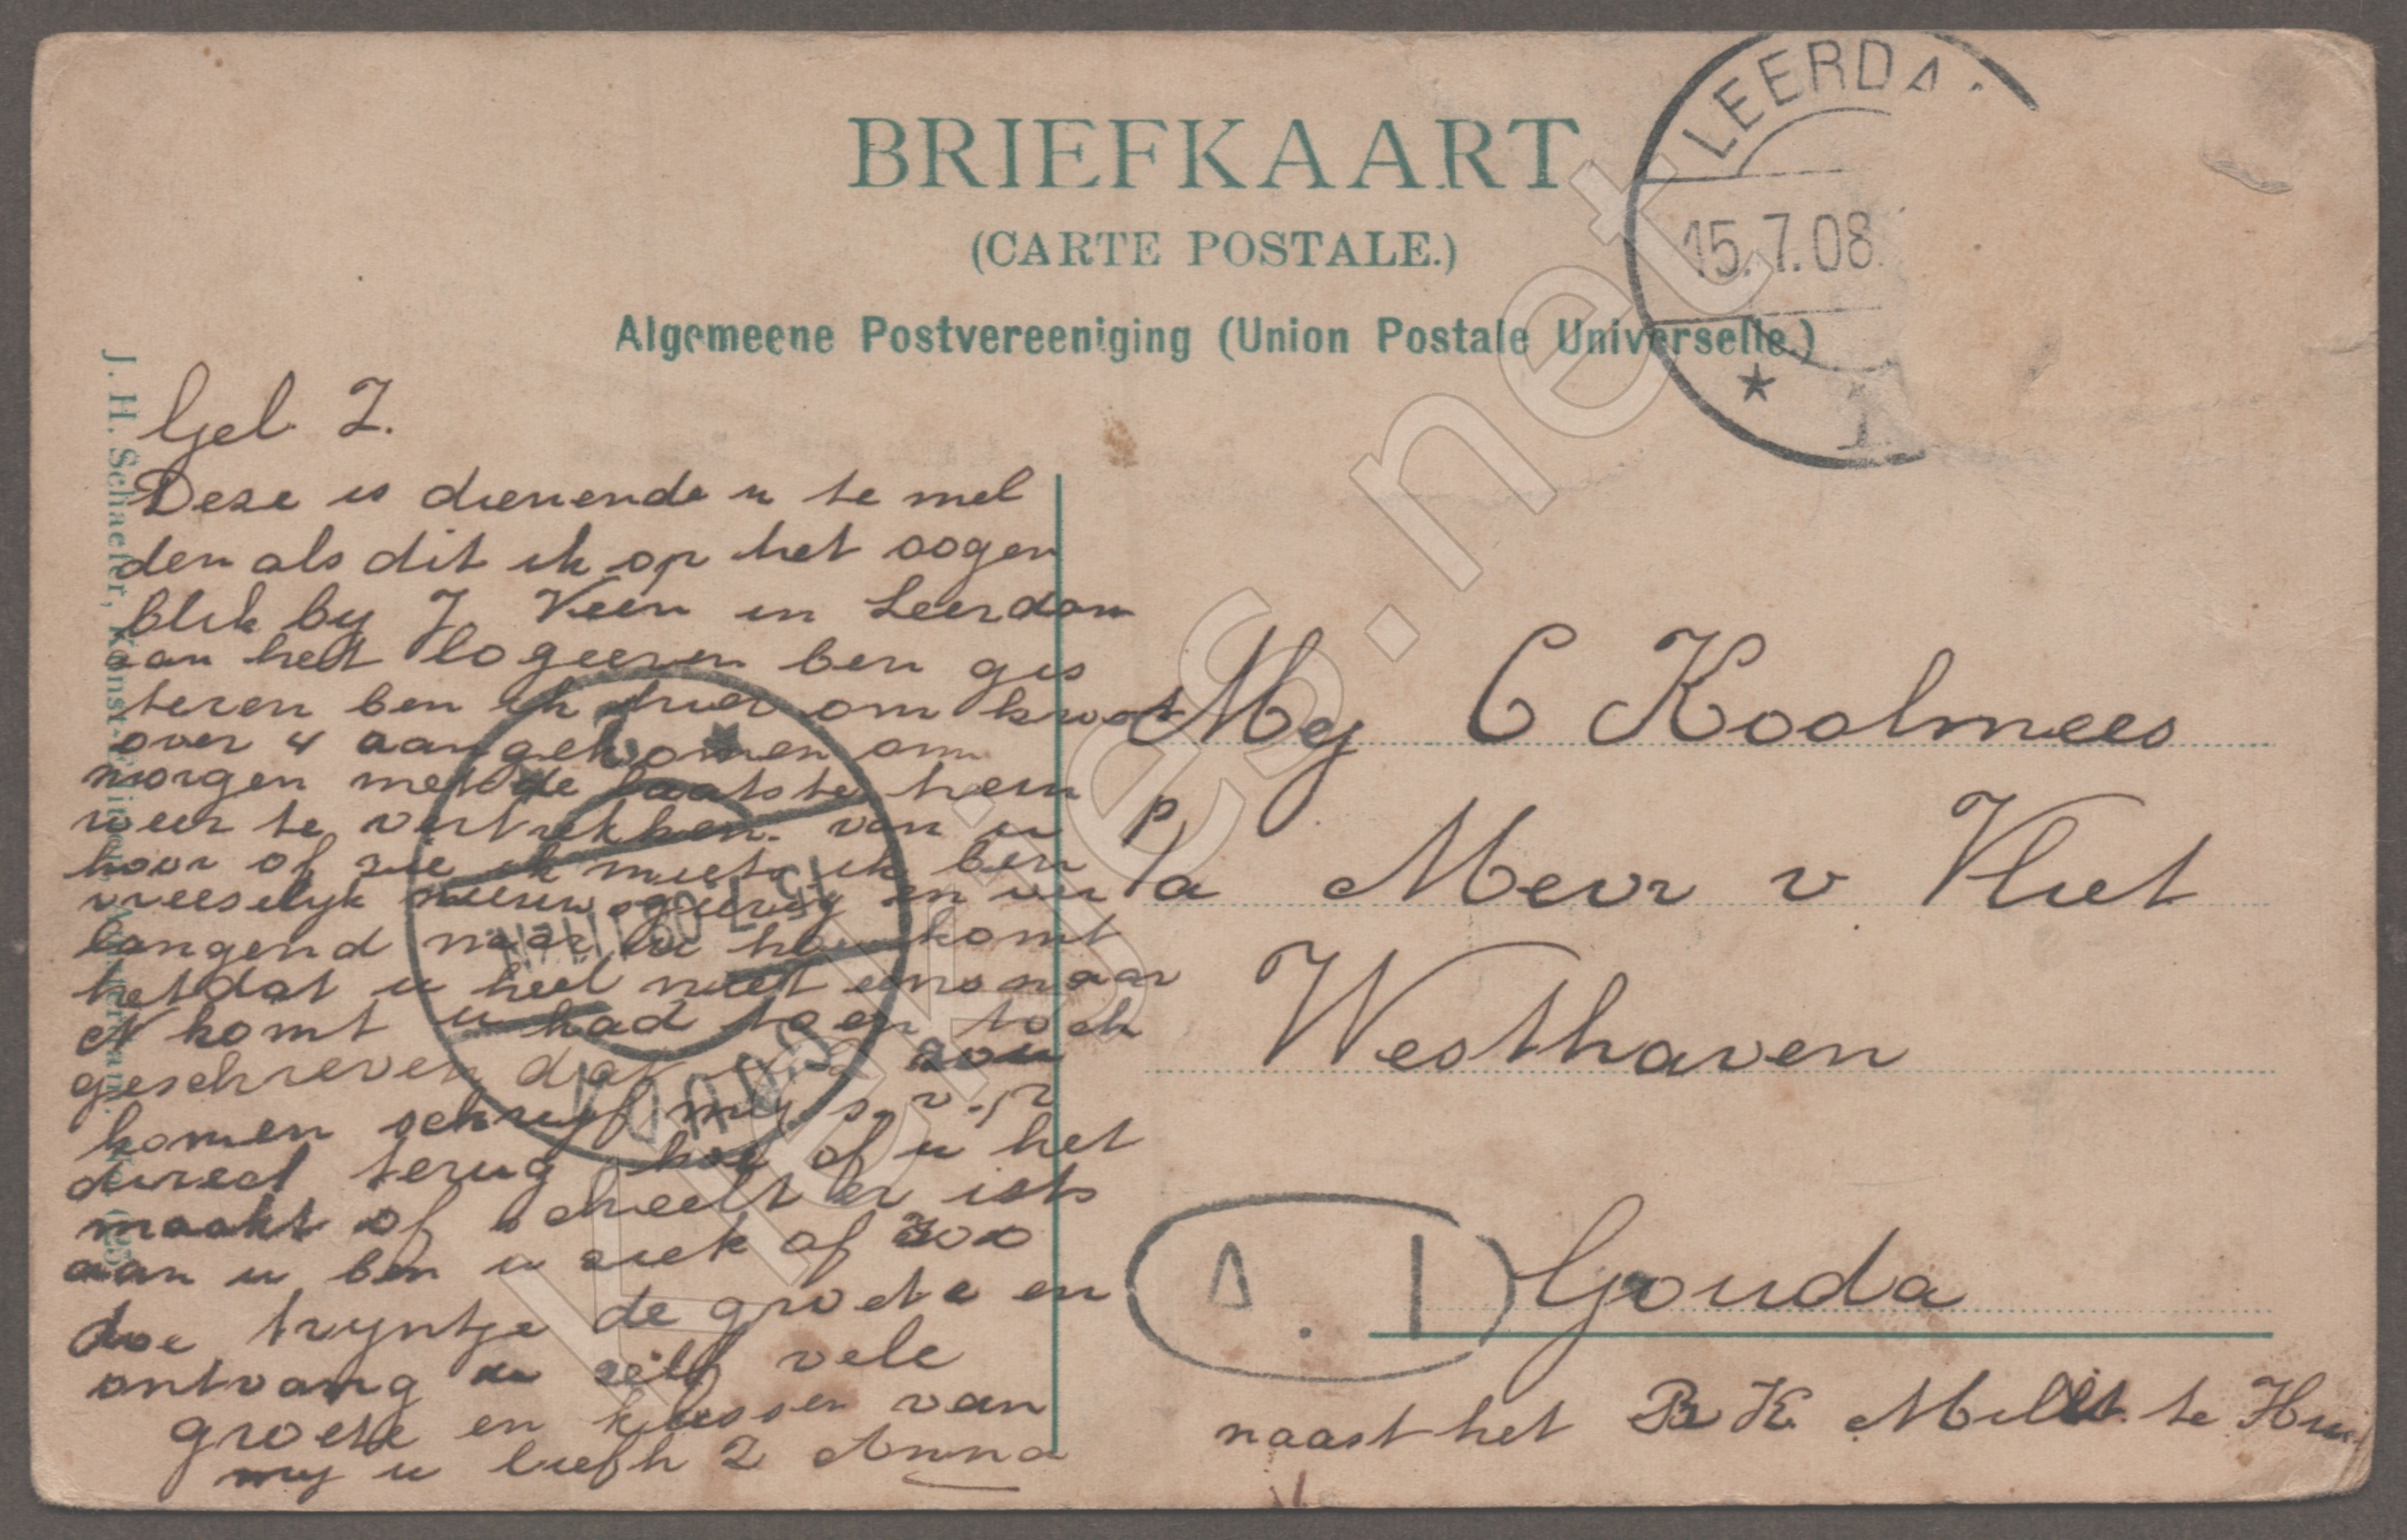 BRIEFKAART
(CARTE POSTALE.)
Algemeene Postvereeniging (Union Postale Universelle.)
LEERDA
15.7.08
* 1
J. H. Schaefer, Kunst
Gel. Z.
Deze is dienende u te mel
den als dit ik op het oogen
blik by J. Veen in Leerdam
aan het logeeren ben gis
teren ben ik hier om kwart
over 4 aangekomen om
morgen met de laatste trein
weer te vertrekken. van u
hoor of zie ik niets ik ben
vreeselyk nieuwsgierig en ver
langend naar u hoe komt
het dat u heel niet eens naar
N komt u had toen toch
geschreven dat zou
komen schryf my s.v.p
direct terug hoe of u het
maakt of scheelt er iets
aan u ben u ziek of zoo
doe tryntje de groete en
ontvang u zelf vele
groete en kussen van
my u liefh Z Anna
Mej C Koolmees
p/a Mevr v Vliet
Westhaven
Gouda
A. 1
naast het B K Milit. te Huis
GOUDA
kiekjes.net